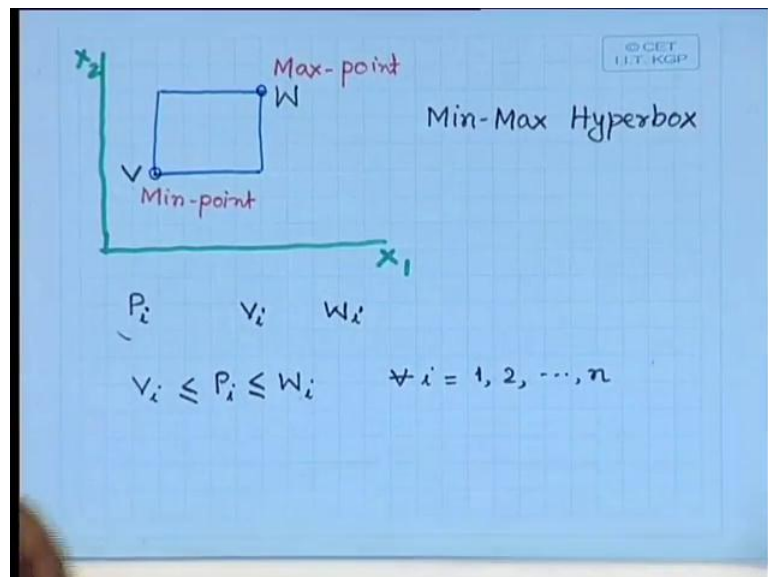 © CET
I.I.T. KGP
X₂
Max-point
W
Min-Max Hyperbox
V
Min-point
X₁
Pᵢ Vᵢ Wᵢ
Vᵢ ≤ Pᵢ ≤ Wᵢ ∀ i = 1, 2, ..., n